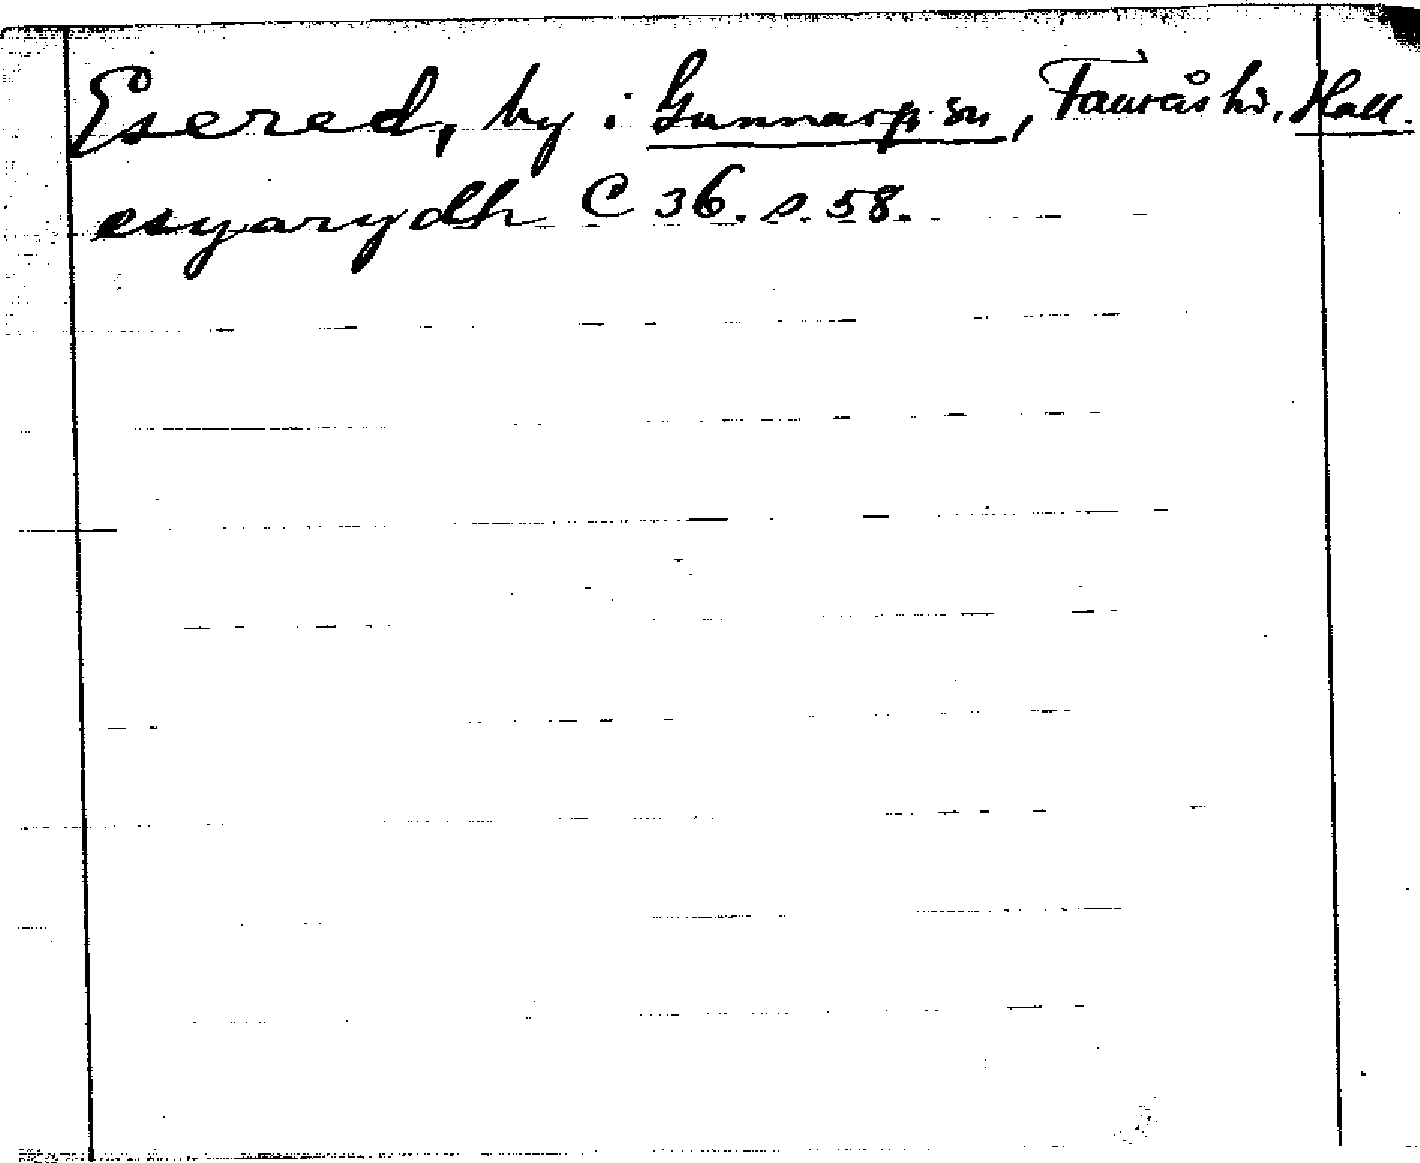 Esered, by i Gunnarp sn, Faurås hd. Hall.
esyarydh C 36. s. 58.